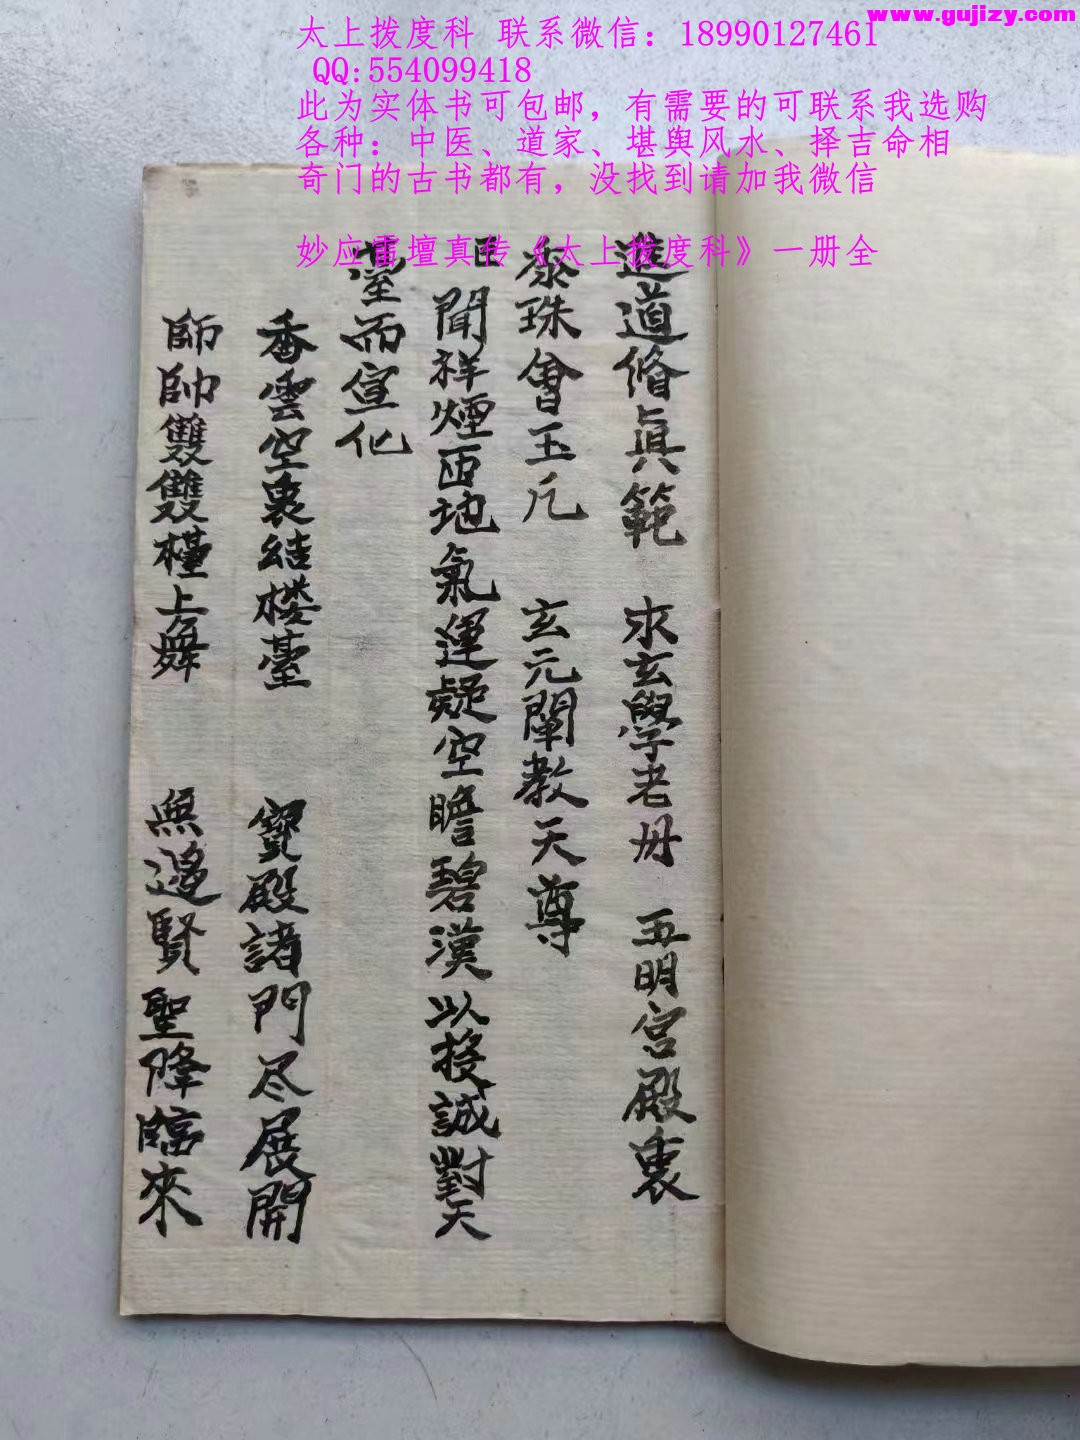 www.gujizy.com
太上拨度科 联系微信：18990127461
QQ:554099418
此为实体书可包邮，有需要的可联系我选购
各种：中医、道家、堪舆风水、择吉命相
奇门的古书都有，没找到请加我微信
妙应雷壇真传《太上拨度科》一册全
進道脩眞範 求玄學老毋 五明宫殿裏
泰珠會玉凢 玄元闡教天尊
聞祥煙匝地氣運凝空瞻碧漢以投誠對天
臺而宣化
香雲空裏結楼臺 寳殿諸門尽展開
師帥雙雙檯上舞 無邊賢聖降臨來